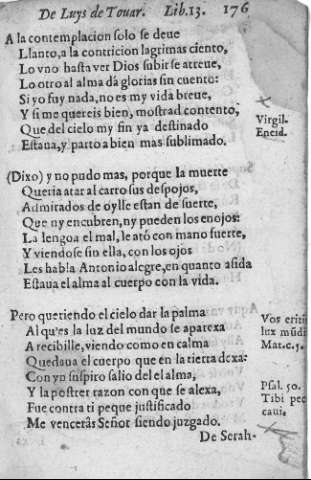 De Luys de Touar. Lib.13. 176
A la contemplacion solo se deue
Llanto, a la contricion lagrimas ciento,
Lo vno hasta ver Dios subir se atreue,
Lo otro al alma dá glorias sin cuento:
Si yo fuy nada, no es my vida breue,
Y si me quereis bien, mostrad contento,
Que del cielo my fin ya destinado
Estaua, y parto a bien mas sublimado.
Virgil.
Eneid.
(Dixo) y no pudo mas, porque la muerte
Queria atar al carro sus despojos,
Admirados de oylle estan de suerte,
Que ny encubren, ny pueden los enojos:
La lengoa el mal, le ató con mano fuerte,
Y viendose sin ella, con los ojos
Les habla Antonio alegre, en quanto asida
Estaua el alma al cuerpo con la vida.
Pero queriendo el cielo dar la palma
Al qu'es la luz del mundo se aparexa
A recibille, viendo como en calma
Quedaua el cuerpo que en la tierra dexa:
Con vn suspiro salio del el alma,
Y la postrer razon con que se alexa,
Fue contra ti peque justificado
Me vencerás Señor siendo juzgado.
Vos eritis
lux mūdi
Mat.c.5.
Psal. 50.
Tibi pec
caui.
De Serah-